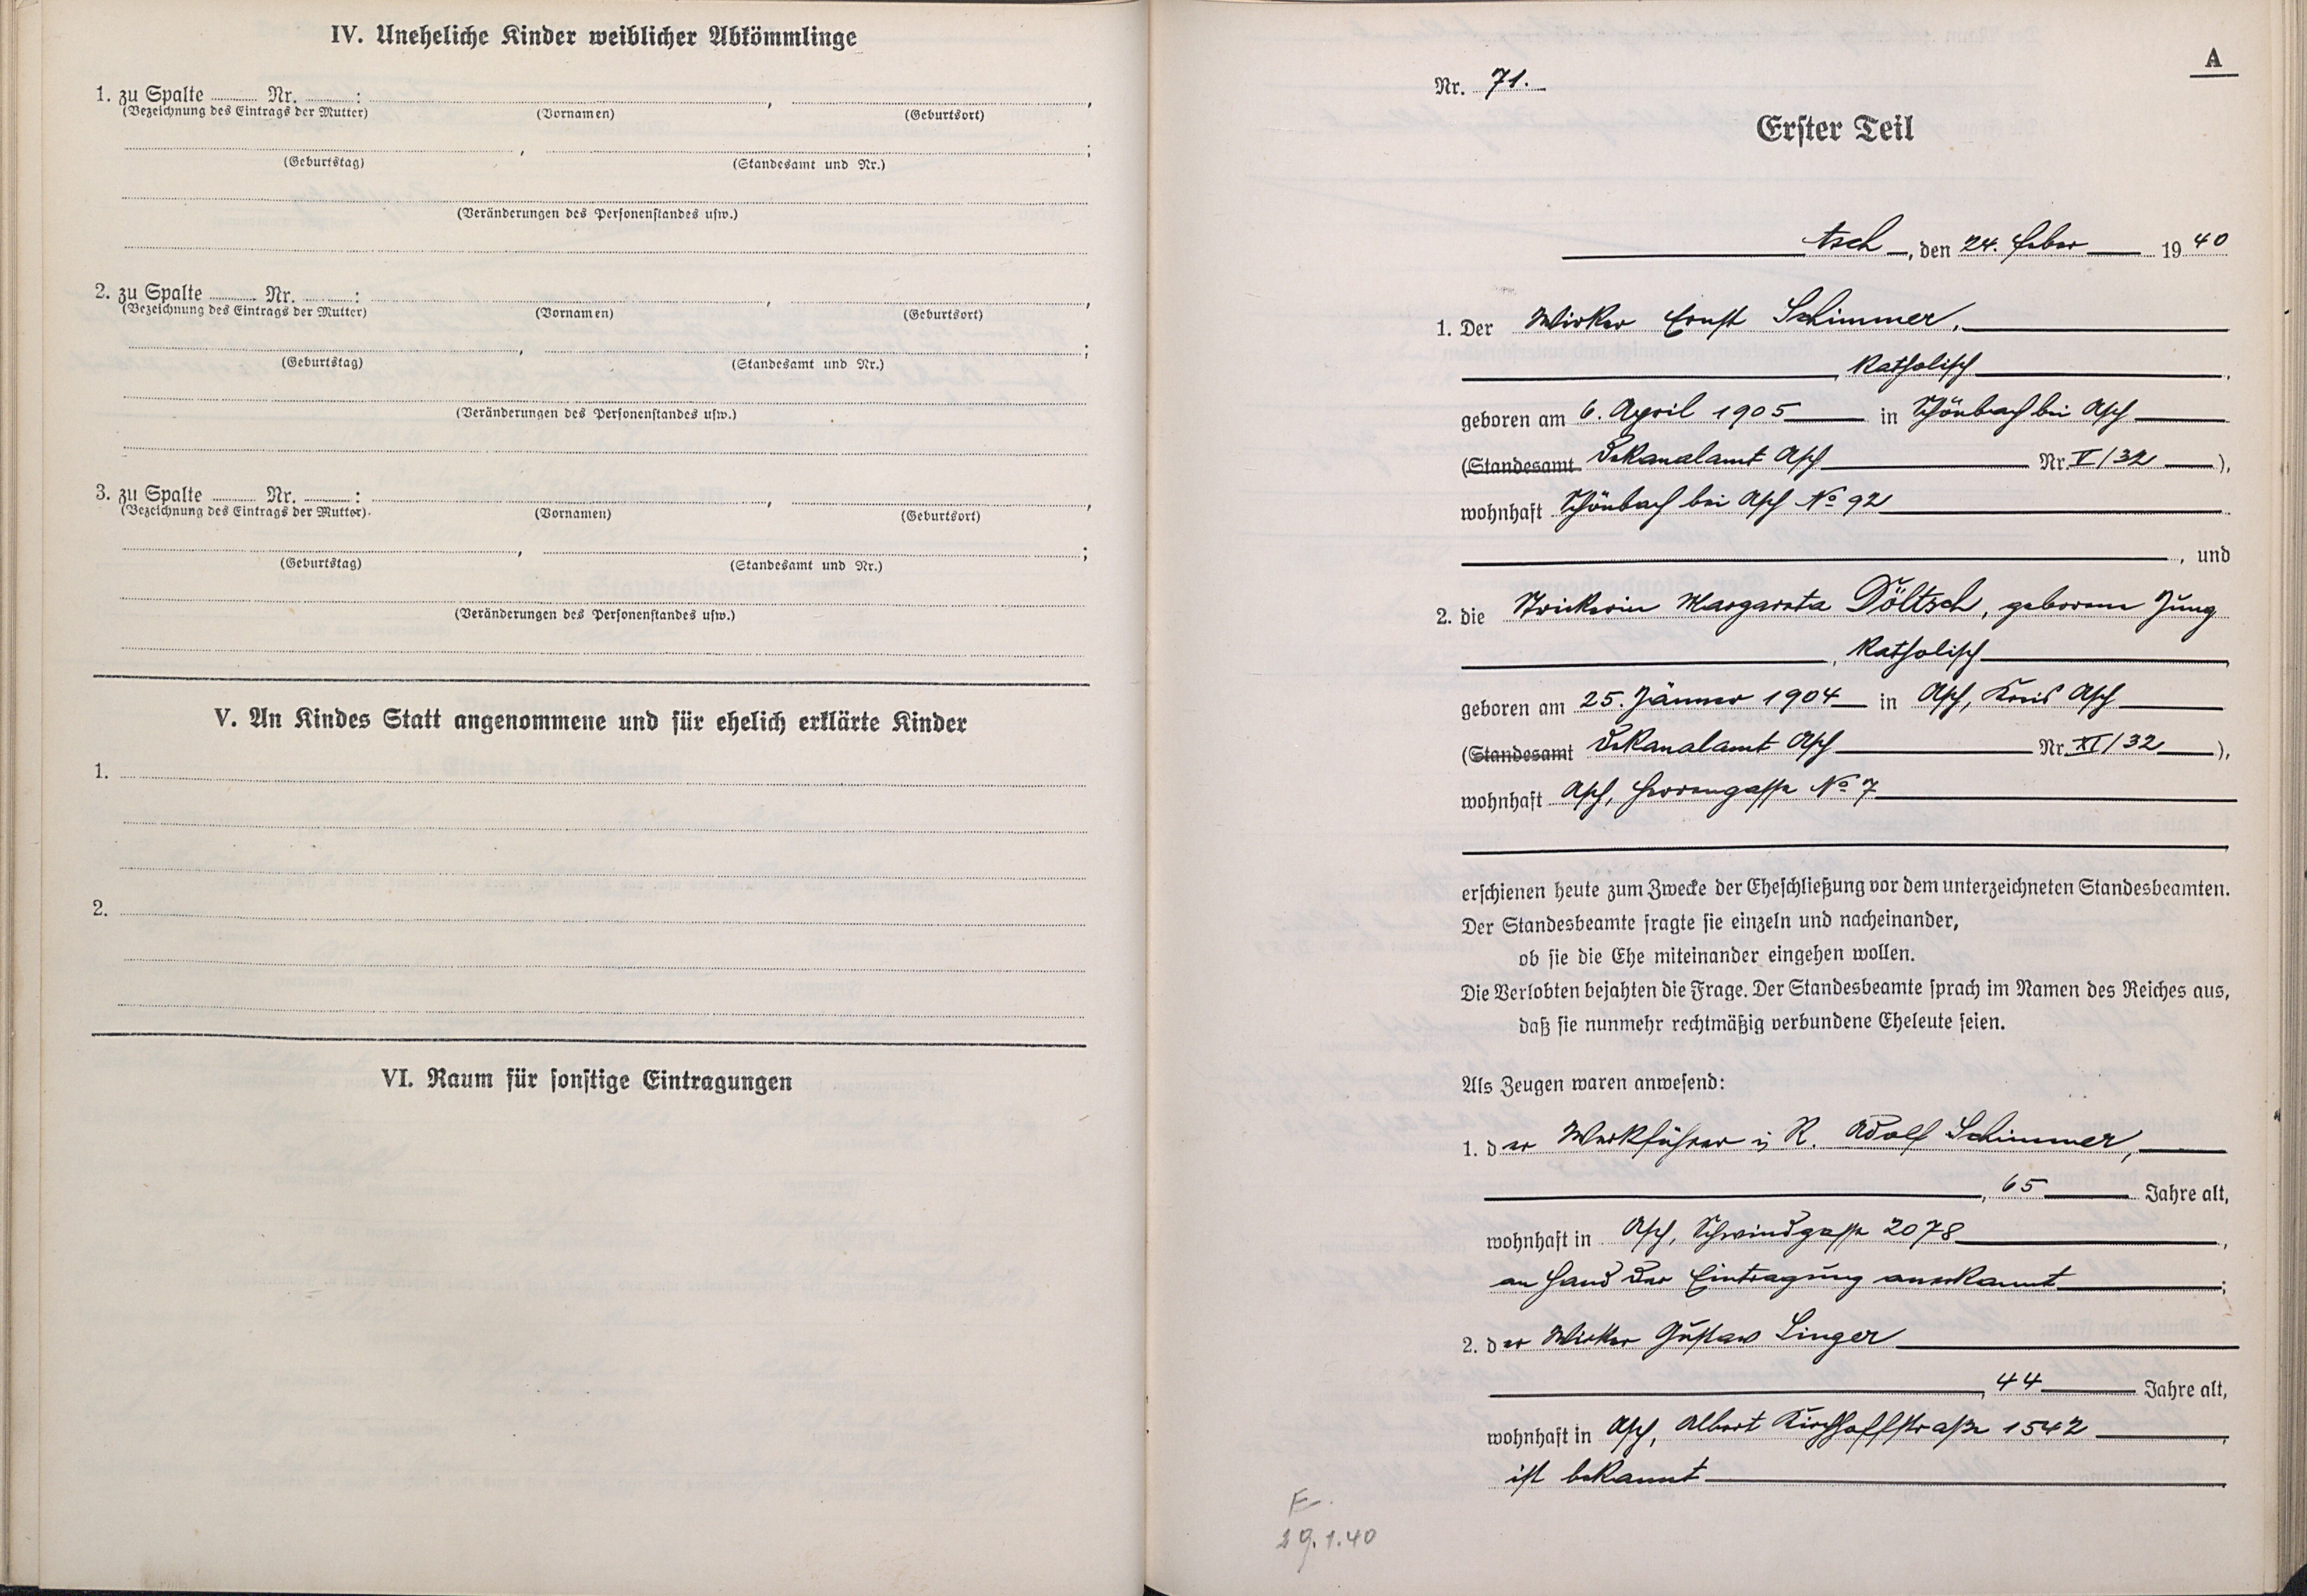 IV. Uneheliche Kinder weiblicher Abkömmlinge
1. zu Spalte ........ Nr. ........ : , ,
(Bezeichnung des Eintrags der Mutter) (Vornamen) (Geburtsort)
, ;
(Geburtstag) (Standesamt und Nr.)
(Veränderungen des Personenstandes usw.)
2. zu Spalte ........ Nr. ........ : , ,
(Bezeichnung des Eintrags der Mutter) (Vornamen) (Geburtsort)
, ;
(Geburtstag) (Standesamt und Nr.)
(Veränderungen des Personenstandes usw.)
3. zu Spalte ........ Nr. ........ : , ,
(Bezeichnung des Eintrags der Mutter) (Vornamen) (Geburtsort)
, ;
(Geburtstag) (Standesamt und Nr.)
(Veränderungen des Personenstandes usw.)
V. An Kindes Statt angenommene und für ehelich erklärte Kinder
1.
2.
VI. Raum für sonstige Eintragungen
A
Nr. 71.
Erster Teil
Asch, den 24. Feber 1940
1. Der Wirker Ernst Schimmer,
, katholisch,
geboren am 6. April 1905 in Schönbach bei Asch
(Standesamt Dekanalamt Asch Nr. V/32),
wohnhaft Schönbach bei Asch No 92
, und
2. die Strickerin Margareta Döltsch, geborene Jung
, katholisch,
geboren am 25. Jänner 1904 in Asch, Kreis Asch
(Standesamt Dekanalamt Asch Nr. XI/32),
wohnhaft Asch, Herrengasse No 7
erschienen heute zum Zwecke der Eheschließung vor dem unterzeichneten Standesbeamten.
Der Standesbeamte fragte sie einzeln und nacheinander,
ob sie die Ehe miteinander eingehen wollen.
Die Verlobten bejahten die Frage. Der Standesbeamte sprach im Namen des Reiches aus,
daß sie nunmehr rechtmäßig verbundene Eheleute seien.
Als Zeugen waren anwesend:
1. der Werkführer i. R. Adolf Schimmer,
, 65 Jahre alt,
wohnhaft in Asch, Schwindgasse 2078,
an Hand der Eintragung anerkannt;
2. der Wirker Gustav Singer
, 44 Jahre alt,
wohnhaft in Asch, Albert Kirchhoffstraße 1542,
ist bekannt
F.
29.1.40